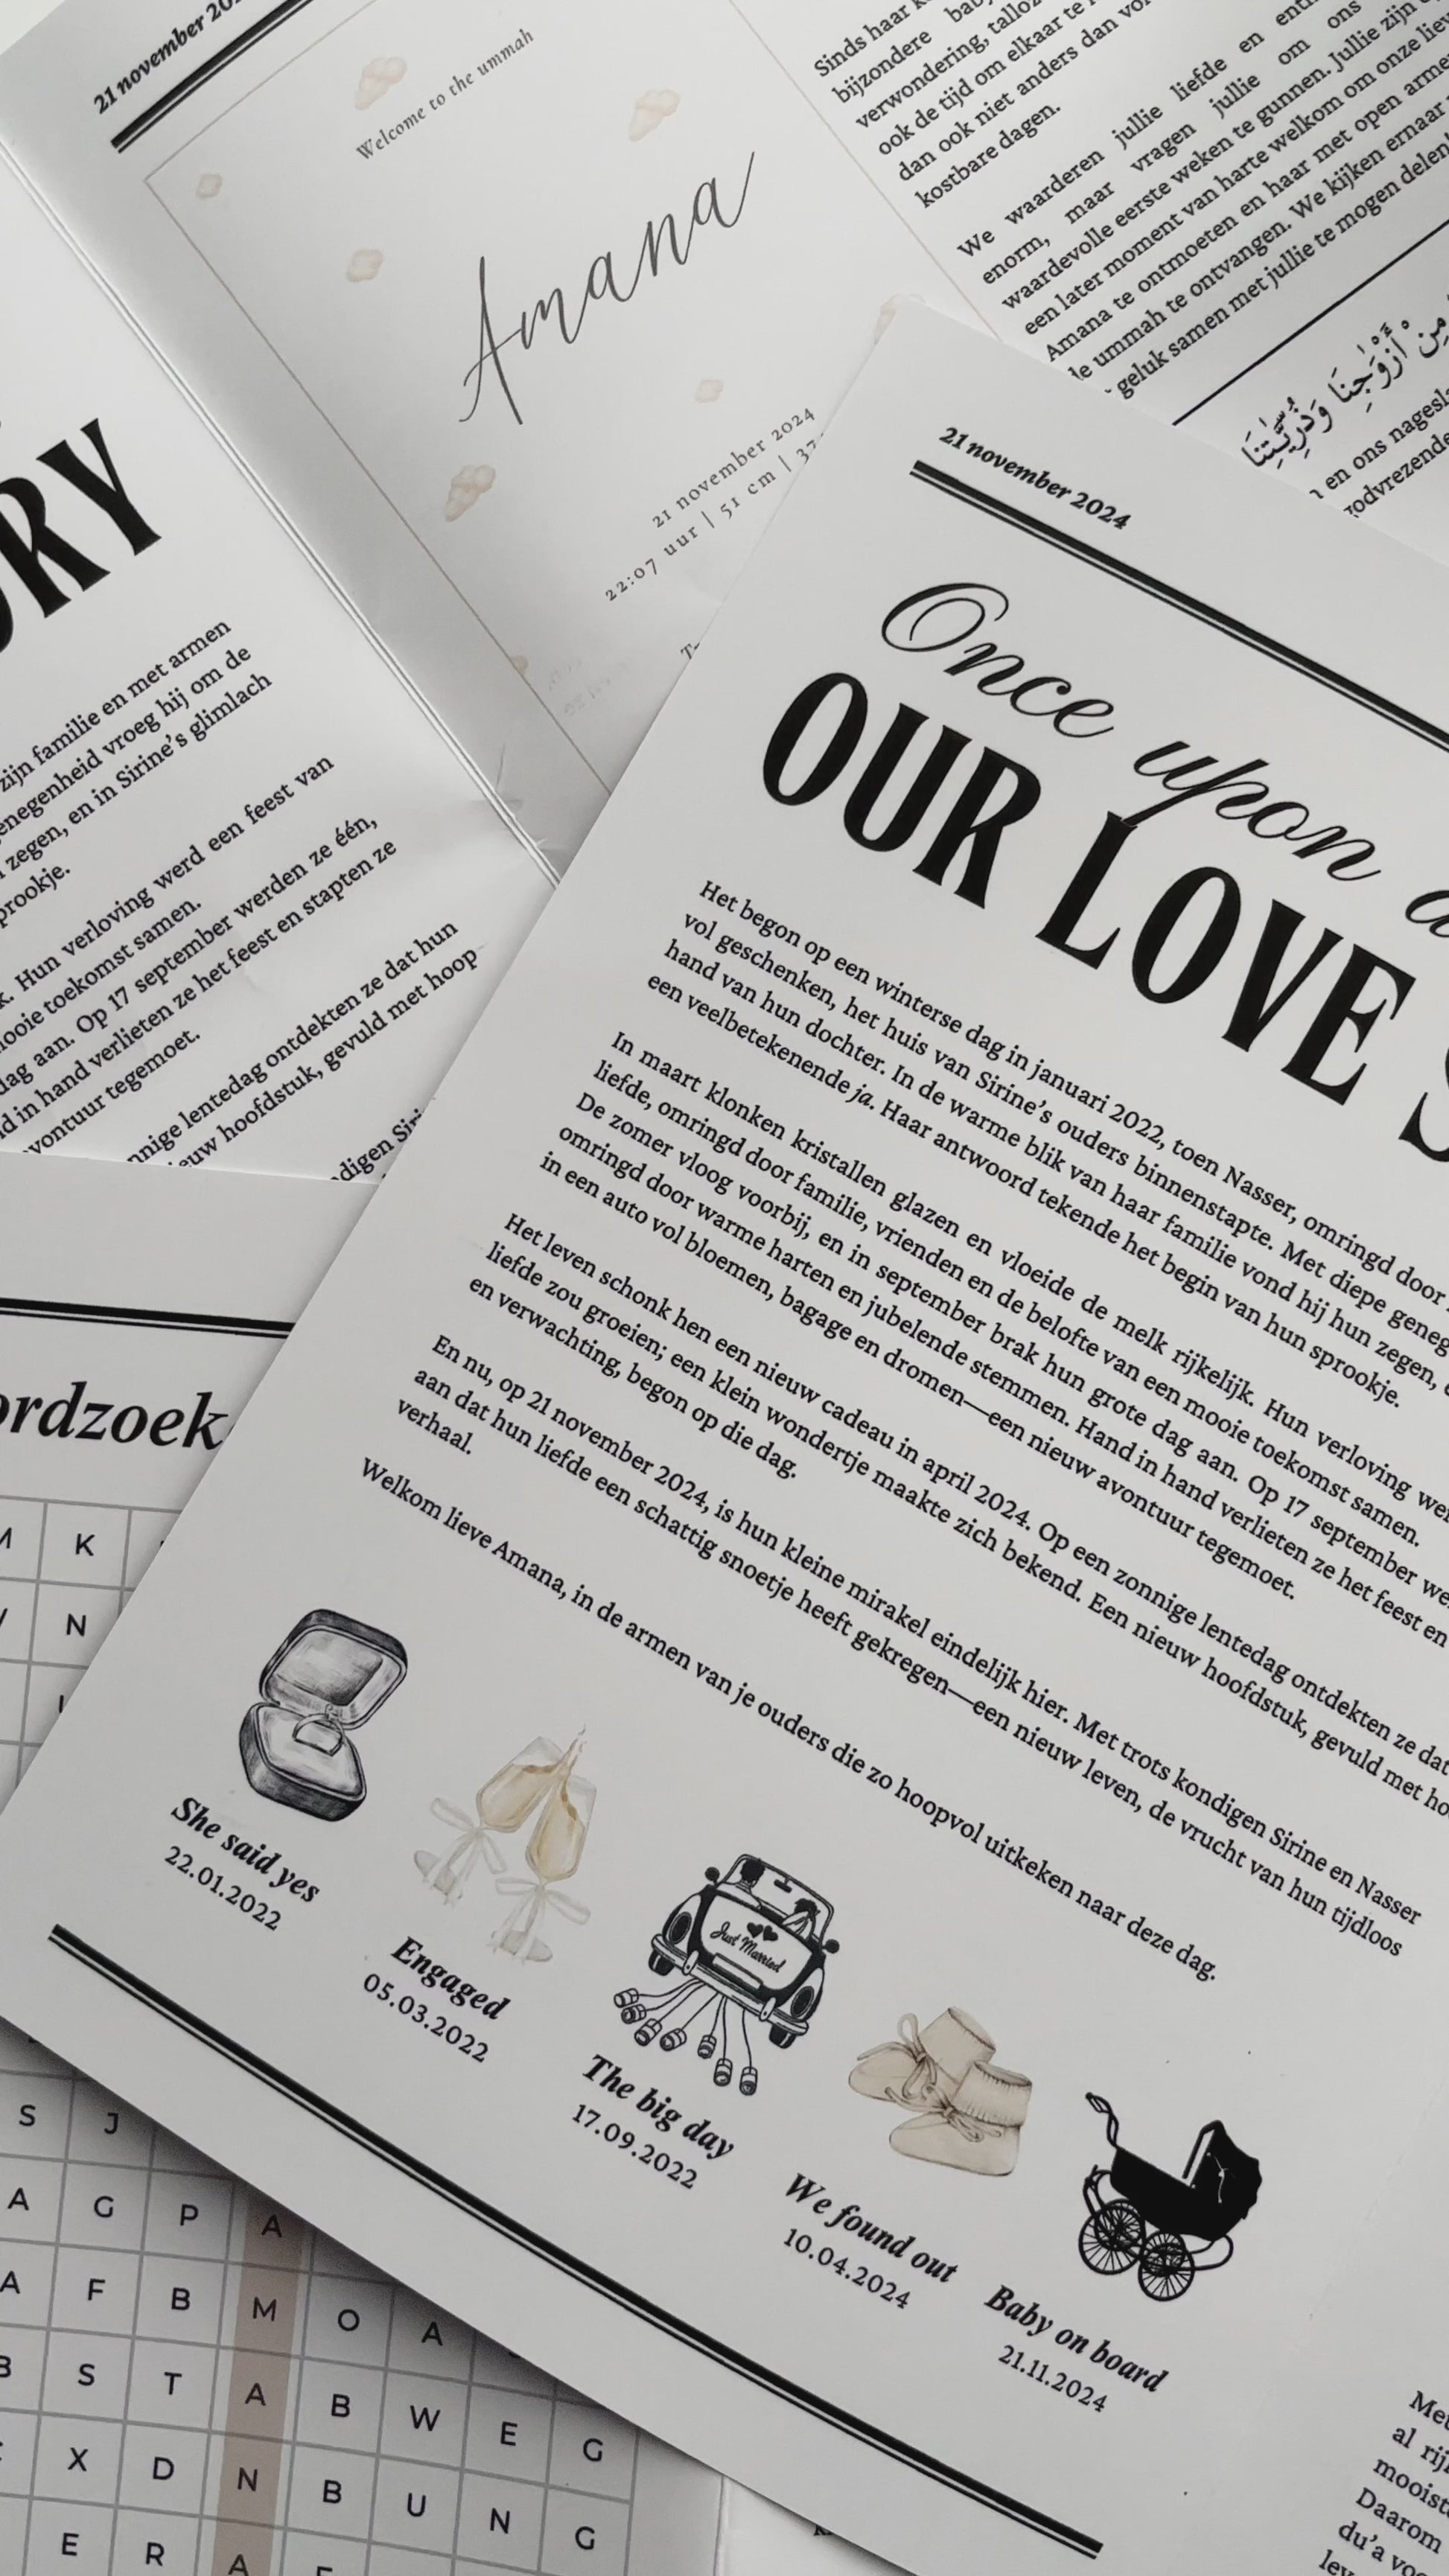 21 november
Welcome to the ummah
Amana
21 november 2024
22:07 uur | 51 cm | 37
Sinds haar
bijzondere
verwondering,
ook de tijd om elkaar te
dan ook niet anders dan
kostbare dagen.
We waarderen jullie liefde en
enorm, maar vragen jullie om ons
waardevolle eerste weken te gunnen. Jullie zijn
een later moment van harte welkom om onze
Amana te ontmoeten en haar met open
de ummah te ontvangen. We kijken ernaar
geluk samen met jullie te mogen delen
مِنْ أَزْوَٰجِنَا وَذُرِّيَّـٰتِنَا
en ons
zijn familie en met armen
vroeg hij om de
zegen, en in Sirine's glimlach
Hun verloving werd een feest van
mooie toekomst samen.
dag aan. Op 17 september werden ze één,
in hand verlieten ze het feest en stapten ze
tegemoet.
lentedag ontdekten ze dat hun
hoofdstuk, gevuld met hoop
21 november 2024
Once upon a
OUR LOVE S
Het begon op een winterse dag in januari 2022, toen Nasser, omringd door
vol geschenken, het huis van Sirine's ouders binnenstapte. Met diepe
hand van hun dochter. In de warme blik van haar familie vond hij hun zegen,
een veelbetekenende ja. Haar antwoord tekende het begin van hun sprookje.
In maart klonken kristallen glazen en vloeide de melk rijkelijk. Hun verloving
liefde, omringd door familie, vrienden en de belofte van een mooie toekomst samen.
De zomer vloog voorbij, en in september brak hun grote dag aan. Op 17 september
omringd door warme harten en jubelende stemmen. Hand in hand verlieten ze het feest en
in een auto vol bloemen, bagage en dromen—een nieuw avontuur tegemoet.
Het leven schonk hen een nieuw cadeau in april 2024. Op een zonnige lentedag ontdekten ze dat
liefde zou groeien; een klein wondertje maakte zich bekend. Een nieuw hoofdstuk, gevuld met
en verwachting, begon op die dag.
En nu, op 21 november 2024, is hun kleine mirakel eindelijk hier. Met trots kondigen Sirine en Nasser
aan dat hun liefde een schattig snoetje heeft gekregen—een nieuw leven, de vrucht van hun tijdloos
verhaal.
Welkom lieve Amana, in de armen van je ouders die zo hoopvol uitkeken naar deze dag.
Just Married
She said yes
22.01.2022
Engaged
05.03.2022
The big day
17.09.2022
We found out
10.04.2024
Baby on board
21.11.2024
K
N
S J
A G P A
A F B M O A
B S T A B W E G
X D N B U N G
E R A
al
Daarom
du'a